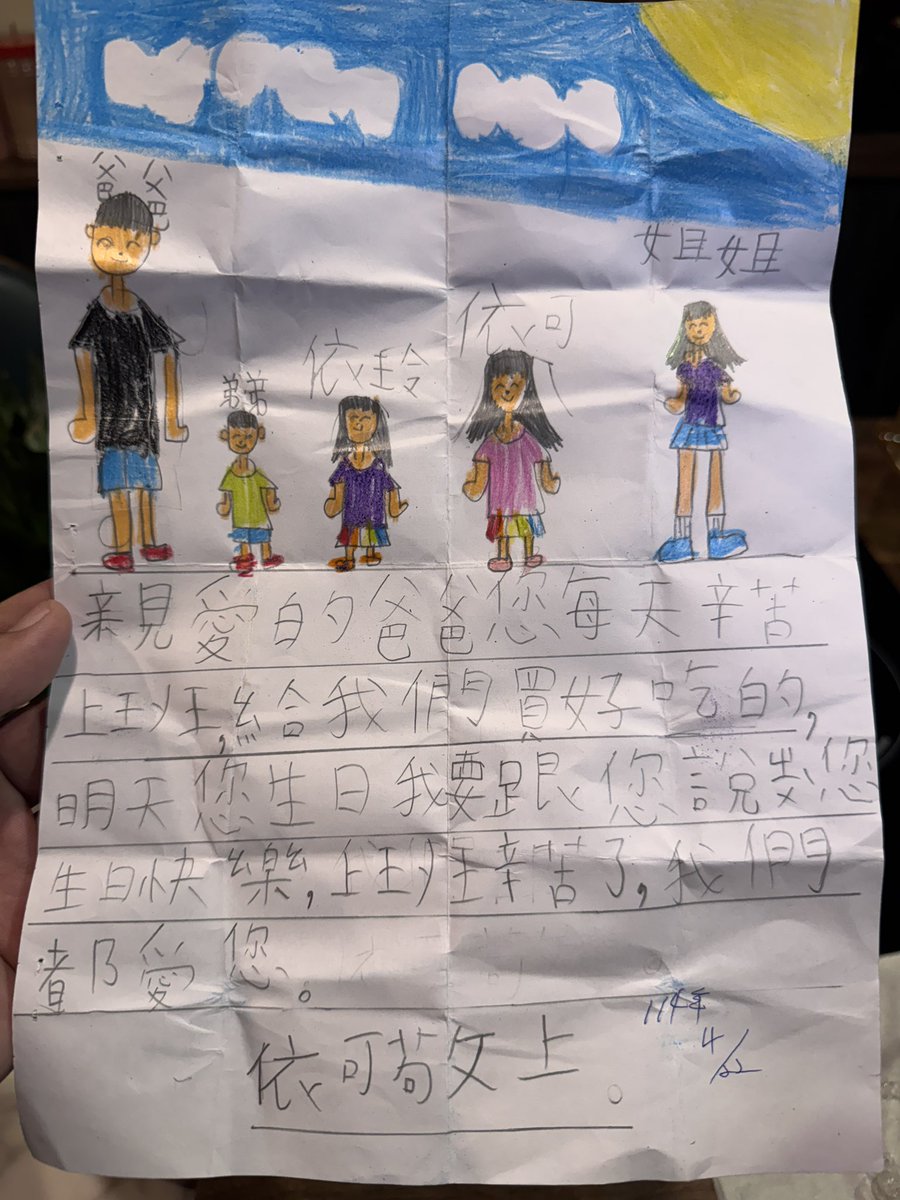 爸爸
姐姐
依可
依玲
弟弟
親愛的爸爸您每天辛苦
上班,給我們買好吃的,
明天您生日我要跟您說祝您
生日快樂,上班辛苦了,我們
都愛您。
依可敬上。
114年
4/22